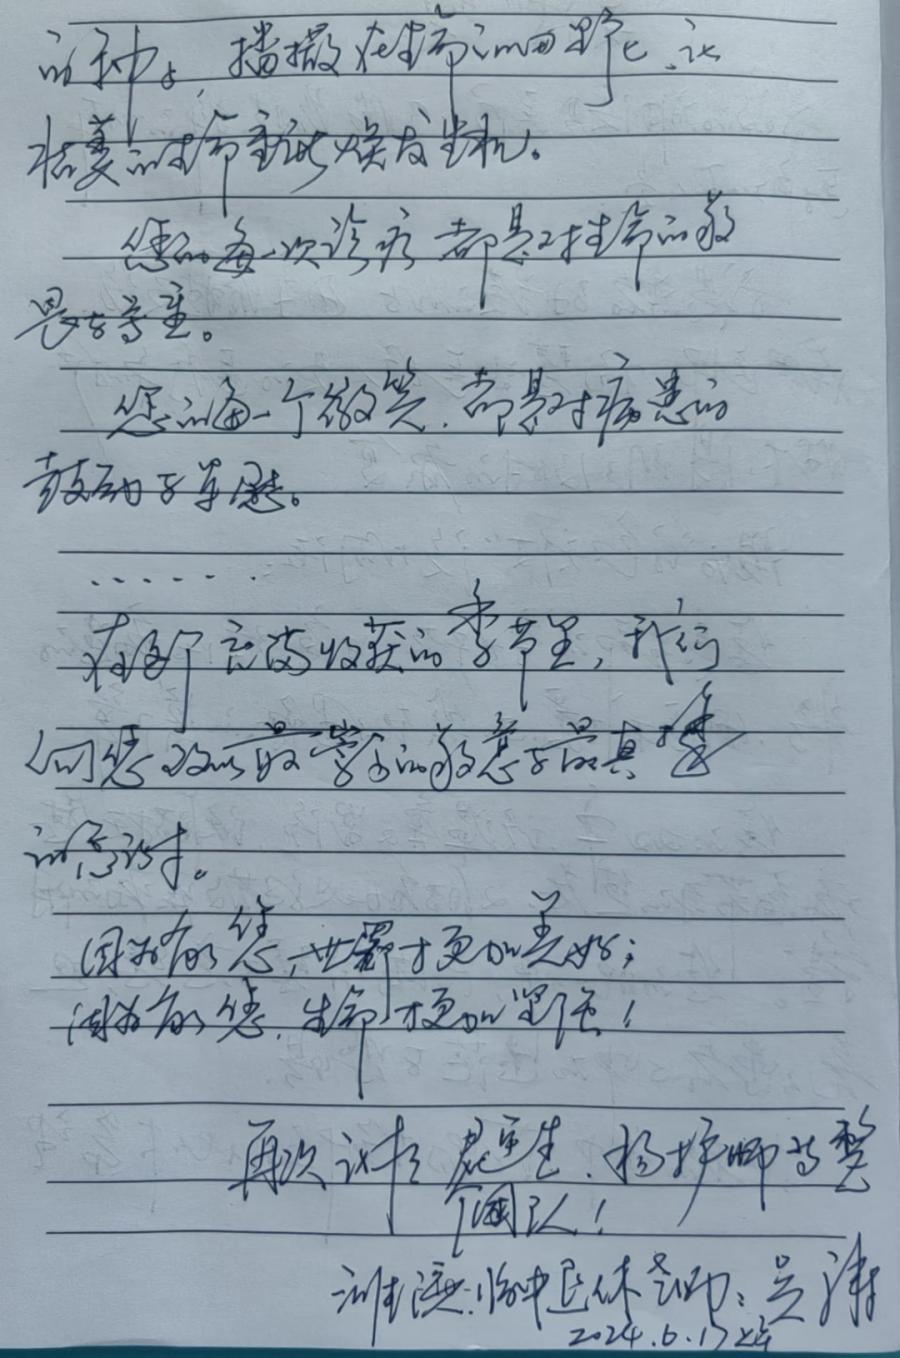 的种子，播撒在生命的田野上，让
枯萎的生命重新焕发生机。
您的每一次诊疗都是对生命的敬
畏与尊重。
您的每一个微笑，都是对病患的
鼓励与安慰。
……
在这个充满收获的季节里，我们
向您致以最崇高的敬意与最真挚
的感谢。
因为有了您，世界才更加美好；
因为有了您，生命才更加坚强！
再次谢谢 医生、杨护师与整
个团队！
退休老师：吴涛
2024.6.17